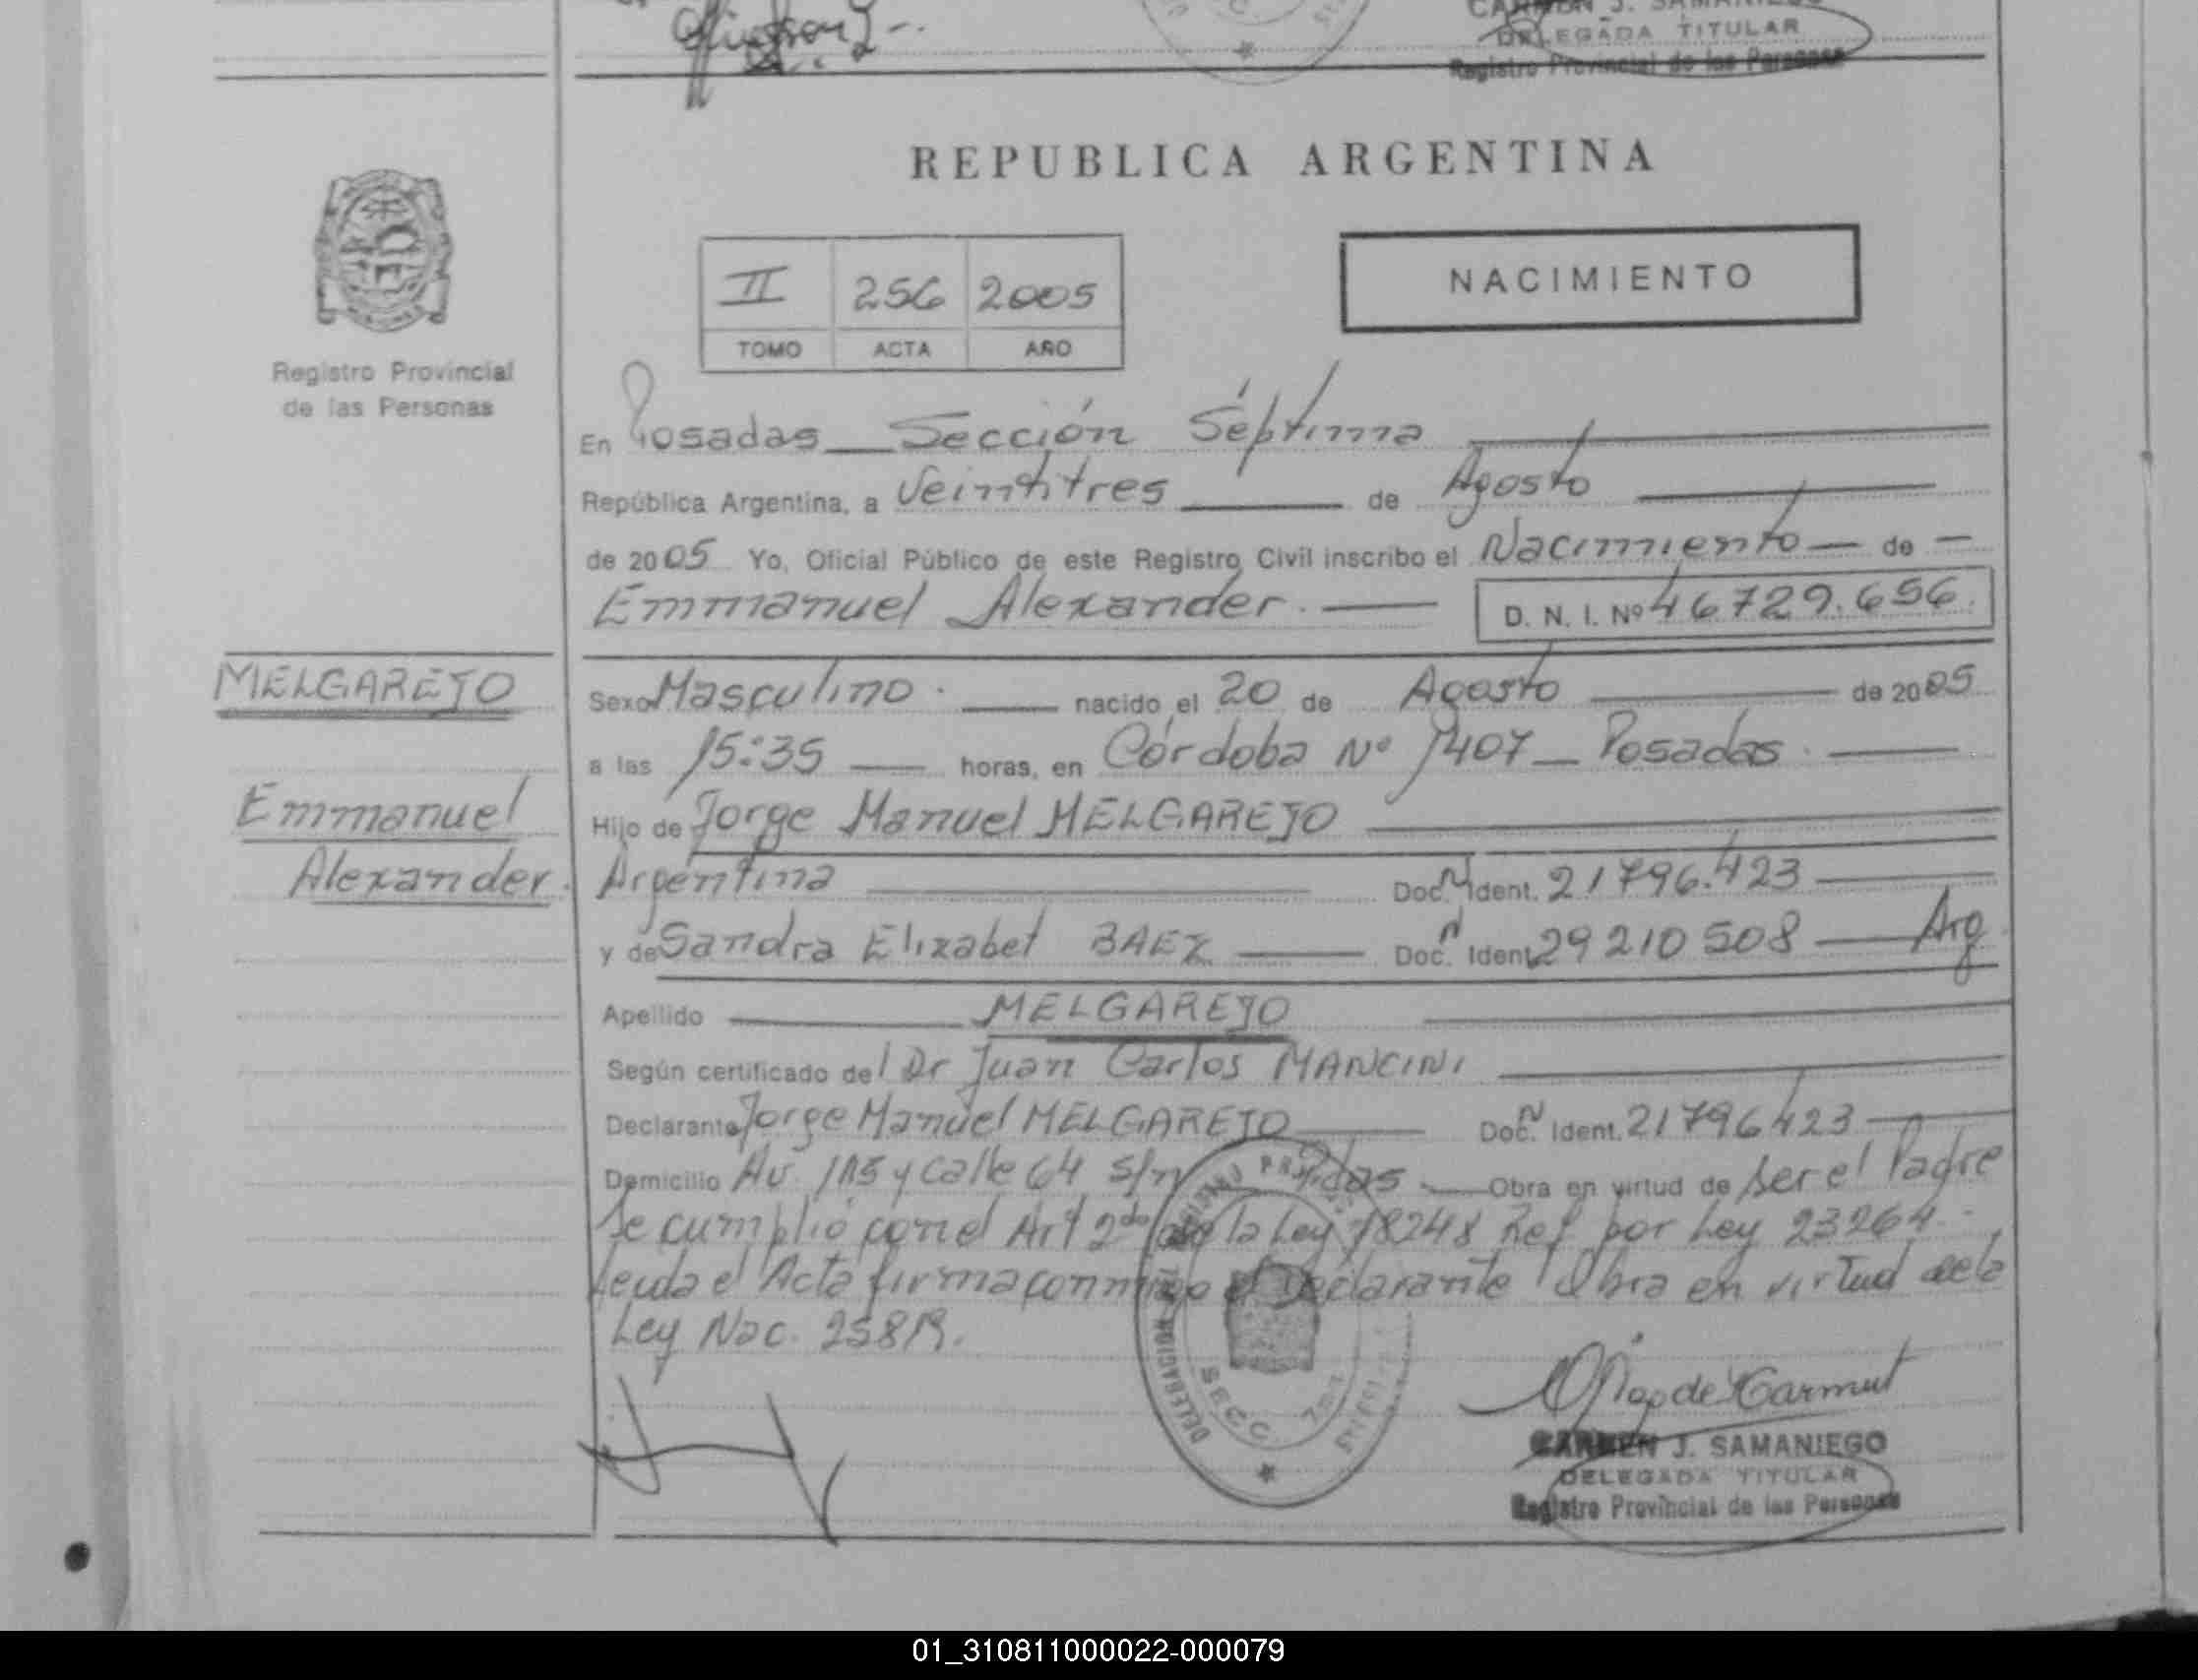 CARMEN J. SAMANIEGO
DELEGADA TITULAR
Registro Provincial de las Personas
REPUBLICA ARGENTINA
II 256 2005
TOMO ACTA AÑO
NACIMIENTO
Registro Provincial
de las Personas
En Posadas Sección Séptima
República Argentina, a Veintitres de Agosto
de 2005 Yo, Oficial Público de este Registro Civil inscribo el Nacimiento de
Emmanuel Alexander. D. N. I. Nº 46.729.656.
MELGAREJO
Emmanuel
Alexander.
Sexo Masculino. nacido el 20 de Agosto de 2005
a las 15:35 horas, en Córdoba Nº 1407 Posadas.
Hijo de Jorge Manuel MELGAREJO
Argentina Doc. N Ident. 21796.423
y de Sandra Elizabet BAEZ Doc. N Ident. 29210508 Arg
Apellido MELGAREJO
Según certificado del Dr Juan Carlos MANCINI
Declarante Jorge Manuel MELGAREJO Doc. N Ident. 21796423
Domicilio Av. 115 y Calle 64 S/n Pdas. Obra en virtud de ser el Padre
Se cumplió con el Art 2do de la Ley 18248 Ref por Ley 23264.
Leida el Acta firma conmigo el Declarante Obra en virtud de la
Ley Nac. 25819.
DELEGACION
SECC. 7ma
CARMEN J. SAMANIEGO
DELEGADA TITULAR
Registro Provincial de las Personas
01_310811000022-000079